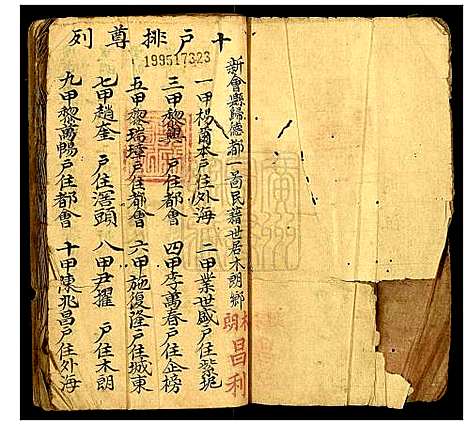 十戶排尊列
199517323
新會縣歸德都一啚民籍世居木朗鄉
一甲楊爾本戶住外海 二甲業世盛戶住紫坭
三甲黎興 戶住都會 四甲李萬春戶住企榜
五甲黎瑞璋戶住都會 六甲施復隆戶住城東
七甲趙奎 戶住滘頭 八甲尹擢 戶住木朗
九甲黎萬暢戶住都會 十甲陳兆昌戶住外海
木朗
昌利